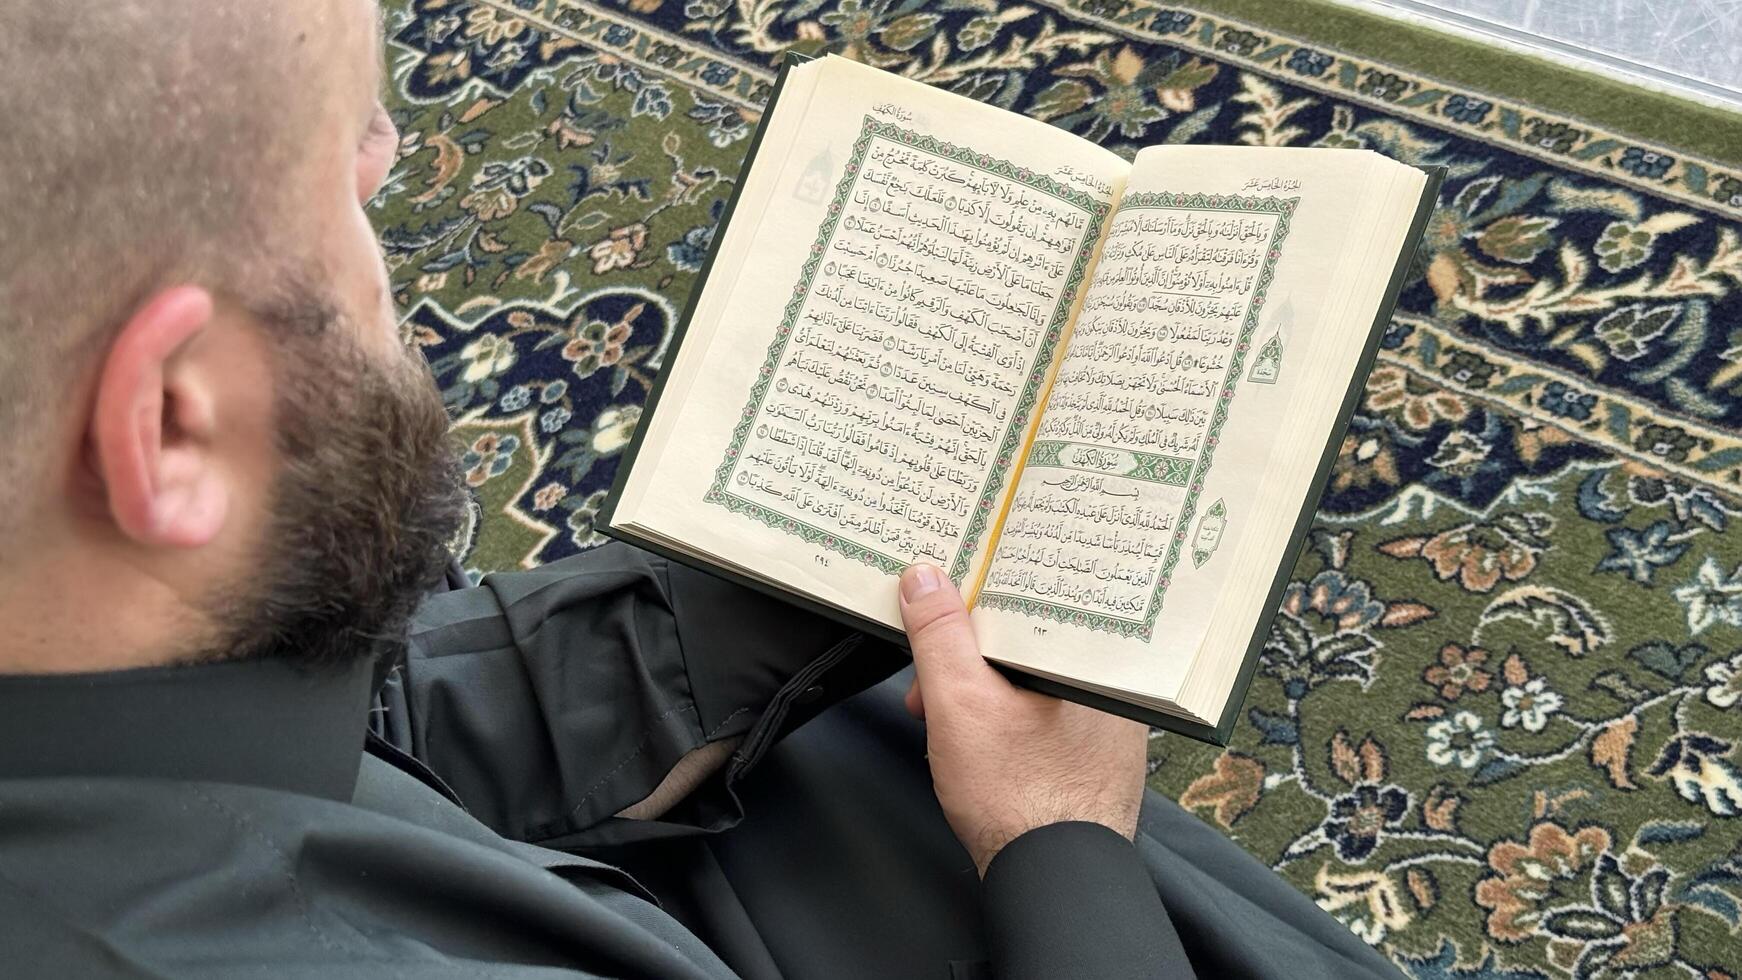 الجُزْءُ الخَامِسَ عَشَرَ
وَبِٱلْحَقِّ أَنزَلْنَٰهُ وَبِٱلْحَقِّ نَزَلَۗ وَمَآ أَرْسَلْنَٰكَ إِلَّا
وَقُرْءَانًا فَرَقْنَٰهُ لِتَقْرَأَهُۥ عَلَى ٱلنَّاسِ عَلَىٰ مُكْثٍ وَنَزَّلْنَٰهُ
قُلْ ءَامِنُوا۟ بِهِۦٓ أَوْ لَا تُؤْمِنُوٓا۟ۚ إِنَّ ٱلَّذِينَ أُوتُوا۟ ٱلْعِلْمَ مِن
عَلَيْهِمْ يَخِرُّونَ لِلْأَذْقَانِ سُجَّدًا ١٠٧ وَيَقُولُونَ سُبْحَٰنَ
وَعْدُ رَبِّنَا لَمَفْعُولًا ١٠٨ وَيَخِرُّونَ لِلْأَذْقَانِ يَبْكُونَ
خُشُوعًا۩ ١٠٩ قُلِ ٱدْعُوا۟ ٱللَّهَ أَوِ ٱدْعُوا۟ ٱلرَّحْمَٰنَۖ أَيًّا
ٱلْأَسْمَآءُ ٱلْحُسْنَىٰۚ وَلَا تَجْهَرْ بِصَلَاتِكَ وَلَا تُخَافِتْ بِهَا
بَيْنَ ذَٰلِكَ سَبِيلًا ١١٠ وَقُلِ ٱلْحَمْدُ لِلَّهِ ٱلَّذِى لَمْ يَتَّخِذْ وَلَدًا
لَّهُۥ شَرِيكٌ فِى ٱلْمُلْكِ وَلَمْ يَكُن لَّهُۥ وَلِىٌّ مِّنَ ٱلذُّلِّۖ وَكَبِّرْهُ تَكْبِيرًۢا
سُورَةُ الكَهْفِ
بِسْمِ ٱللَّهِ ٱلرَّحْمَٰنِ ٱلرَّحِيمِ
ٱلْحَمْدُ لِلَّهِ ٱلَّذِىٓ أَنزَلَ عَلَىٰ عَبْدِهِ ٱلْكِتَٰبَ وَلَمْ يَجْعَل لَّهُۥ عِوَجَاۜ
قَيِّمًا لِّيُنذِرَ بَأْسًا شَدِيدًا مِّن لَّدُنْهُ وَيُبَشِّرَ ٱلْمُؤْمِنِينَ
ٱلَّذِينَ يَعْمَلُونَ ٱلصَّٰلِحَٰتِ أَنَّ لَهُمْ أَجْرًا حَسَنًا
مَّٰكِثِينَ فِيهِ أَبَدًا ٣ وَيُنذِرَ ٱلَّذِينَ قَالُوا۟ ٱتَّخَذَ ٱللَّهُ وَلَدًا
سَجدة
٢٩٣
الجُزْءُ الخَامِسَ عَشَرَ
سُورَةُ الكَهْفِ
مَّا لَهُم بِهِۦ مِنْ عِلْمٍ وَلَا لِءَابَآئِهِمْۚ كَبُرَتْ كَلِمَةً تَخْرُجُ مِنْ
أَفْوَٰهِهِمْۚ إِن يَقُولُونَ إِلَّا كَذِبًا ٥ فَلَعَلَّكَ بَٰخِعٌ نَّفْسَكَ
عَلَىٰٓ ءَاثَٰرِهِمْ إِن لَّمْ يُؤْمِنُوا۟ بِهَٰذَا ٱلْحَدِيثِ أَسَفًا ٦ إِنَّا
جَعَلْنَا مَا عَلَى ٱلْأَرْضِ زِينَةً لَّهَا لِنَبْلُوَهُمْ أَيُّهُمْ أَحْسَنُ عَمَلًا ٧
وَإِنَّا لَجَٰعِلُونَ مَا عَلَيْهَا صَعِيدًا جُرُزًا ٨ أَمْ حَسِبْتَ
أَنَّ أَصْحَٰبَ ٱلْكَهْفِ وَٱلرَّقِيمِ كَانُوا۟ مِنْ ءَايَٰتِنَا عَجَبًا ٩
إِذْ أَوَى ٱلْفِتْيَةُ إِلَى ٱلْكَهْفِ فَقَالُوا۟ رَبَّنَآ ءَاتِنَا مِن لَّدُنكَ
رَحْمَةً وَهَيِّئْ لَنَا مِنْ أَمْرِنَا رَشَدًا ١٠ فَضَرَبْنَا عَلَىٰٓ ءَاذَانِهِمْ
فِى ٱلْكَهْفِ سِنِينَ عَدَدًا ١١ ثُمَّ بَعَثْنَٰهُمْ لِنَعْلَمَ أَىُّ
ٱلْحِزْبَيْنِ أَحْصَىٰ لِمَا لَبِثُوٓا۟ أَمَدًا ١٢ نَّحْنُ نَقُصُّ عَلَيْكَ نَبَأَهُم
بِٱلْحَقِّۚ إِنَّهُمْ فِتْيَةٌ ءَامَنُوا۟ بِرَبِّهِمْ وَزِدْنَٰهُمْ هُدًى ١٣
وَرَبَطْنَا عَلَىٰ قُلُوبِهِمْ إِذْ قَامُوا۟ فَقَالُوا۟ رَبُّنَا رَبُّ ٱلسَّمَٰوَٰتِ
وَٱلْأَرْضِ لَن نَّدْعُوَا۟ مِن دُونِهِۦٓ إِلَٰهًاۖ لَّقَدْ قُلْنَآ إِذًا شَطَطًا ١٤
هَٰٓؤُلَآءِ قَوْمُنَا ٱتَّخَذُوا۟ مِن دُونِهِۦٓ ءَالِهَةًۖ لَّوْلَا يَأْتُونَ عَلَيْهِم
بِسُلْطَٰنٍۭ بَيِّنٍۖ فَمَنْ أَظْلَمُ مِمَّنِ ٱفْتَرَىٰ عَلَى ٱللَّهِ كَذِبًا ١٥
٢٩٤